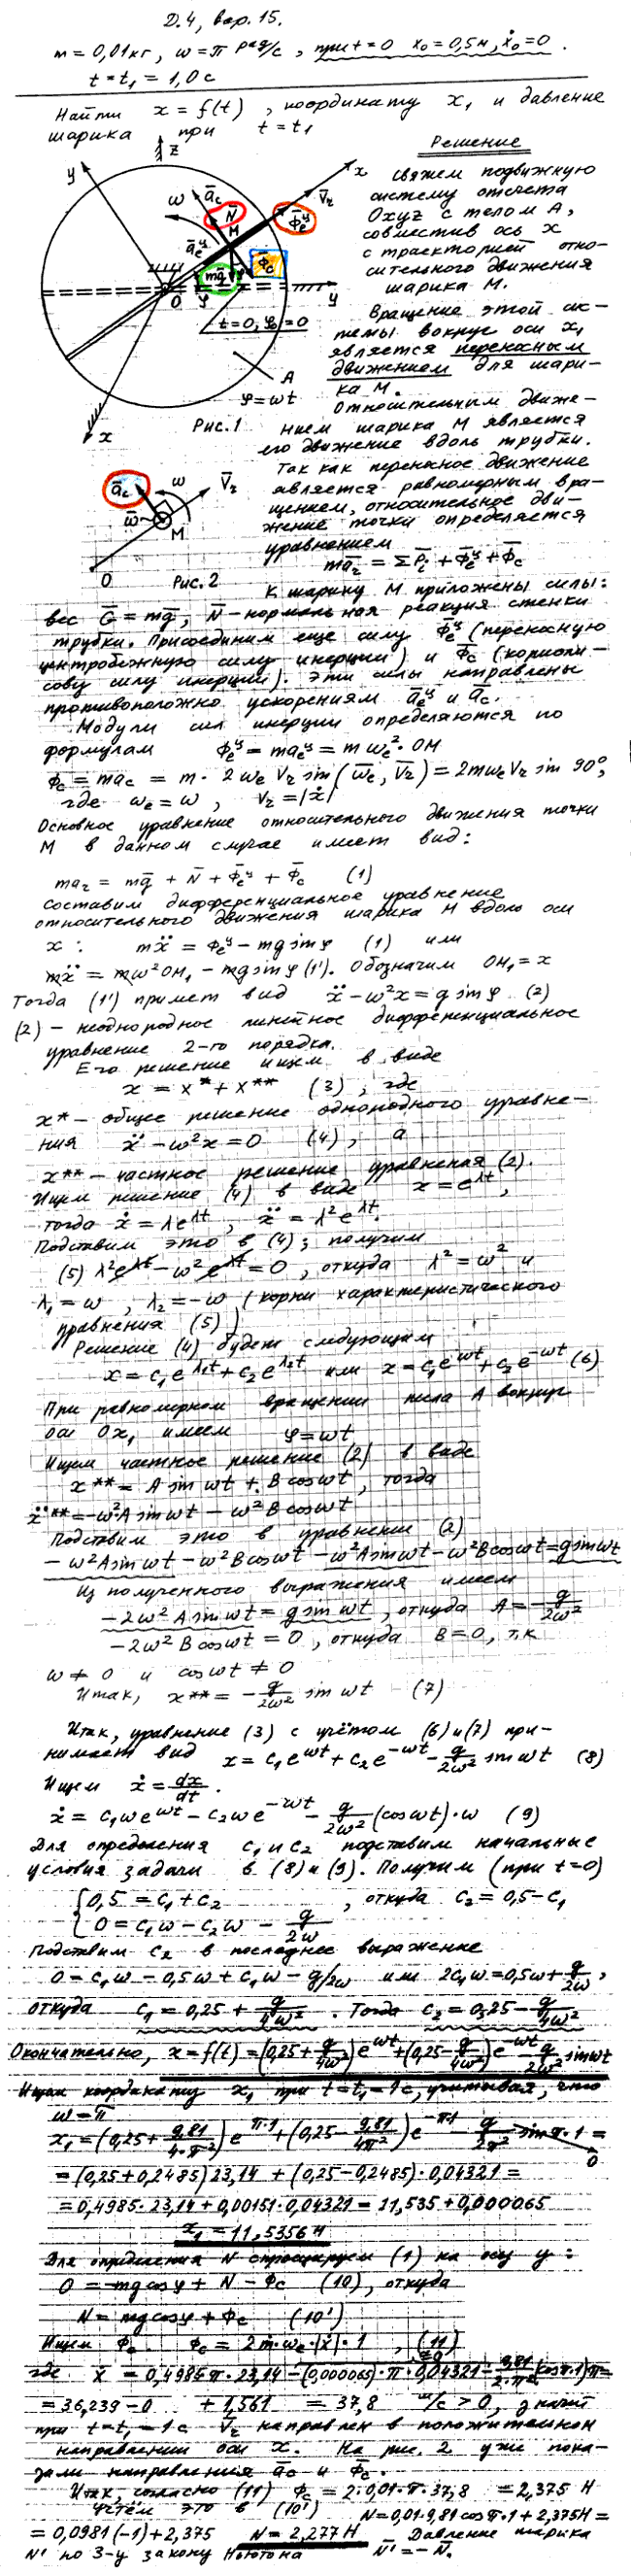 Д.4, вар. 15.
m = 0,01 кг, ω = π рад/с, при t = 0 x₀ = 0,5 м, ẋ₀ = 0.
t = t₁ = 1,0 с
Найти x = f(t), координату x₁ и давление
шарика при t = t₁
Решение
z
y
ω
a̅c
N̅
M
a̅eц
Φ̅eц
V̅r
x
mg̅
Φ̅c
O
φ
y
t=0, φ₀=0
A
φ = ωt
x
Рис. 1
Свяжем подвижную
систему отсчета
Oxyz с телом A,
совместив ось x
с траекторией отно-
сительного движения
шарика M.
Вращение этой сис-
темы вокруг оси x₁
является переносным
движением для шари-
ка M.
Относительным движе-
нием шарика M является
его движение вдоль трубки.
Так как переносное движение
является равномерным вра-
щением, относительное дви-
жение точки определяется
уравнением
ma̅r = ΣP̅i + Φ̅eц + Φ̅c
a̅c
ω
V̅r
ω̅
M
O
Рис. 2
К шарику M приложены силы:
вес G̅ = mg̅, N̅ – нормальная реакция стенки
трубки. Присоединим еще силу Φ̅eц (переносную
центробежную силу инерции) и Φ̅c (кориоли-
сову силу инерции). Эти силы направлены
противоположно ускорениям a̅eц и a̅c.
Модули сил инерции определяются по
формулам Φeц = maeц = mωe²·OM
Φc = mac = m·2ωe Vr sin(ω̅e, V̅r) = 2mωeVr sin 90°,
где ωe = ω, Vr = |ẋ|
Основное уравнение относительного движения точки
M в данном случае имеет вид:
mar = mg̅ + N̅ + Φ̅eц + Φ̅c (1)
Составим дифференциальное уравнение
относительного движения шарика M вдоль оси
x: mẍ = Φeц – mg sin φ (1) или
mẍ = mω²OM₁ – mg sin φ (1'). Обозначим OM₁ = x
Тогда (1') примет вид ẍ – ω²x = g sin φ (2)
(2) – неоднородное линейное дифференциальное
уравнение 2-го порядка.
Его решение ищем в виде
x = x* + x** (3), где
x* – общее решение однородного уравне-
ния ẍ – ω²x = 0 (4), а
x** – частное решение уравнения (2).
Ищем решение (4) в виде x = e^λt,
тогда ẋ = λe^λt, ẍ = λ²e^λt.
Подставим это в (4); получим
(5) λ²e^λt – ω²e^λt = 0, откуда λ² = ω² и
λ₁ = ω, λ₂ = –ω (корни характеристического
уравнения (5))
Решение (4) будет следующим
x = c₁e^λ₁t + c₂e^λ₂t или x = c₁e^ωt + c₂e^-ωt (6)
При равномерном вращении тела A вокруг
оси Ox₁ имеем φ = ωt
Ищем частное решение (2) в виде
x** = A sin ωt + B cos ωt, тогда
ẍ** = –ω²A sin ωt – ω²B cos ωt
Подставим это в уравнение (2)
–ω²A sin ωt – ω²B cos ωt – ω²A sin ωt – ω²B cos ωt = g sin ωt
Из полученного выражения имеем
–2ω²A sin ωt = g sin ωt, откуда A = –g/2ω²
–2ω²B cos ωt = 0, откуда B = 0, т.к
ω ≠ 0 и cos ωt ≠ 0
Итак, x** = –g/2ω² sin ωt – (7)
Итак, уравнение (3) с учётом (6) и (7) при-
нимает вид x = c₁e^ωt + c₂e^-ωt – g/2ω² sin ωt (8)
Ищем ẋ = dx/dt.
ẋ = c₁ωe^ωt – c₂ωe^-ωt – g/2ω² (cos ωt)·ω (9)
Для определения c₁ и c₂ подставим начальные
условия задачи в (8) и (9). Получим (при t=0)
{0,5 = c₁ + c₂, откуда c₂ = 0,5 – c₁
0 = c₁ω – c₂ω – g/2ω
Подставим c₂ в последнее выражение
0 = c₁ω – 0,5ω + c₁ω – g/2ω или 2c₁ω = 0,5ω + g/2ω,
откуда c₁ = 0,25 + g/4ω². Тогда c₂ = 0,25 – g/4ω²
Окончательно, x = f(t) = (0,25 + g/4ω²)e^ωt + (0,25 – g/4ω²)e^-ωt – g/2ω² sin ωt
Ищем координату x₁ при t = t₁ = 1 с, учитывая, что
ω = π
x₁ = (0,25 + 9,81/4·π²)e^π·1 + (0,25 – 9,81/4π²)e^-π·1 – g/2π² sin π·1 =
0
= (0,25 + 0,2485) 23,14 + (0,25 – 0,2485)·0,04321 =
= 0,4985·23,14 + 0,00151·0,04321 = 11,535 + 0,000065
x₁ = 11,5356 м
Для определения N спроецируем (1) на ось y:
0 = –mg cos φ + N – Φc (10), откуда
N = mg cos φ + Φc (10')
Ищем Φc Φc = 2m·ωe·|ẋ|·1, (11)
≈0
где ẋ = 0,4985π·23,14 – (0,000065)·π·0,04321 – 9,81/2·π² (cos π·1)π =
= 36,239 – 0 + 1,561 = 37,8 м/с > 0, значит
при t = t₁ = 1 с V̅r направлен в положительном
направлении оси x. На рис. 2 уже пока-
зали направления a̅c и Φ̅c.
Итак, согласно (11) Φc = 2·0,01·π·37,8 = 2,375 Н
Учтём это в (10') N = 0,01·9,81 cos π·1 + 2,375 Н =
= 0,0981(–1) + 2,375 N = 2,277 Н Давление шарика
N' по 3-у закону Ньютона N̅' = –N̅.